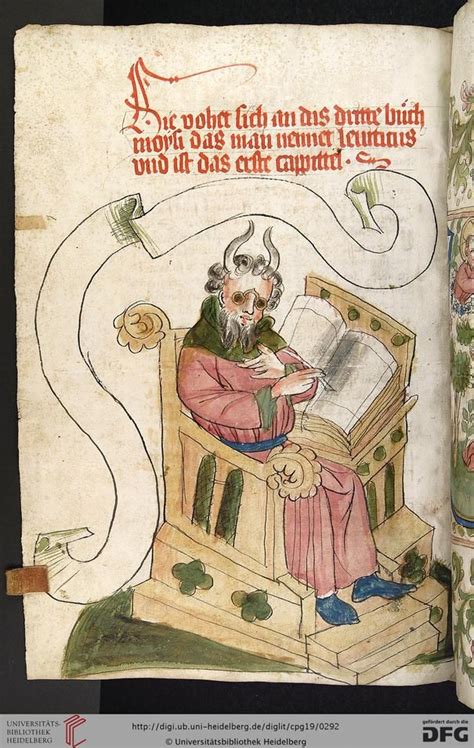 Hie vohet sich an dis dritte buͦch
moysi das man nennet leuiticus
vnd ist das erste cappittel ·
UNIVERSITÄTS-
BIBLIOTHEK
HEIDELBERG
http://digi.ub.uni-heidelberg.de/diglit/cpg19/0292
© Universitätsbibliothek Heidelberg
gefördert durch die
DFG